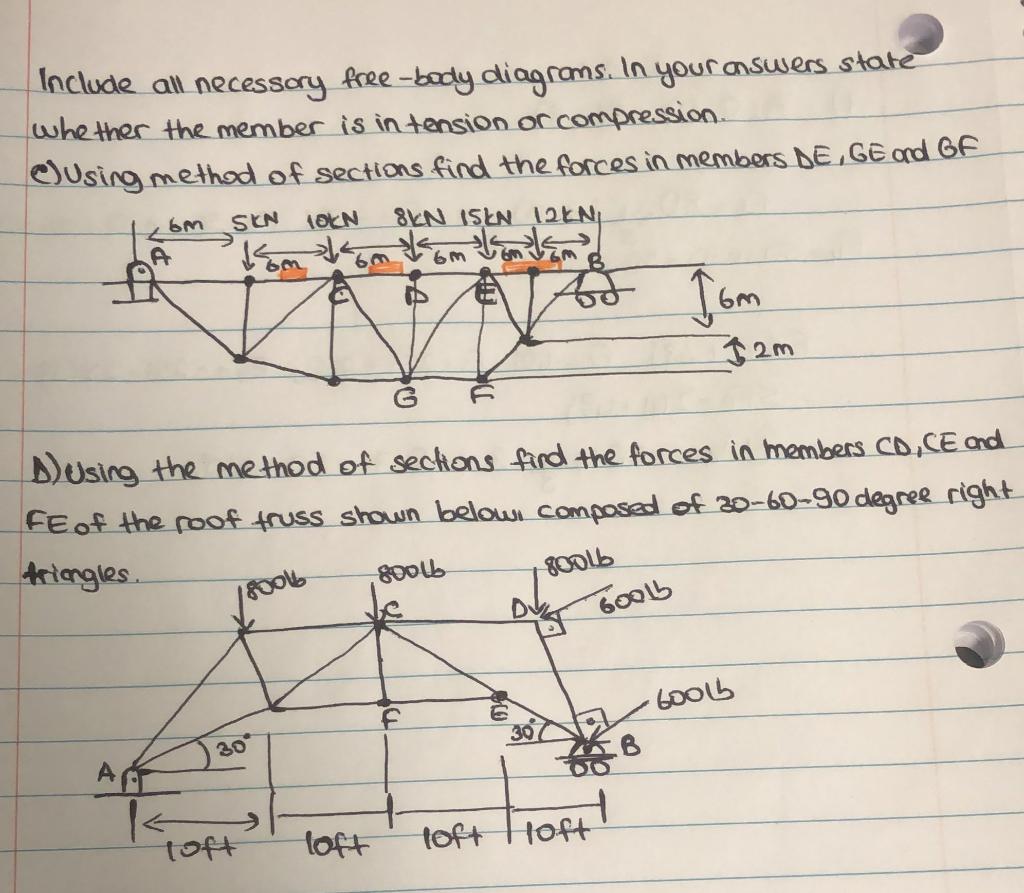 Include all necessary free-body diagrams. In your answers state
whether the member is in tension or compression.
c) Using method of sections find the forces in members DE, GE and GF
6m 5kN 10kN 8kN 15kN 12kN
6m 6m 6m 6m 6m
A C D E B
6m
2m
G F
D) Using the method of sections find the forces in members CD, CE and
FE of the roof truss shown below, composed of 30-60-90 degree right
triangles.
800lb 800lb 800lb
C D 600lb
600lb
F E
30° 30° B
A
10ft 10ft 10ft 10ft